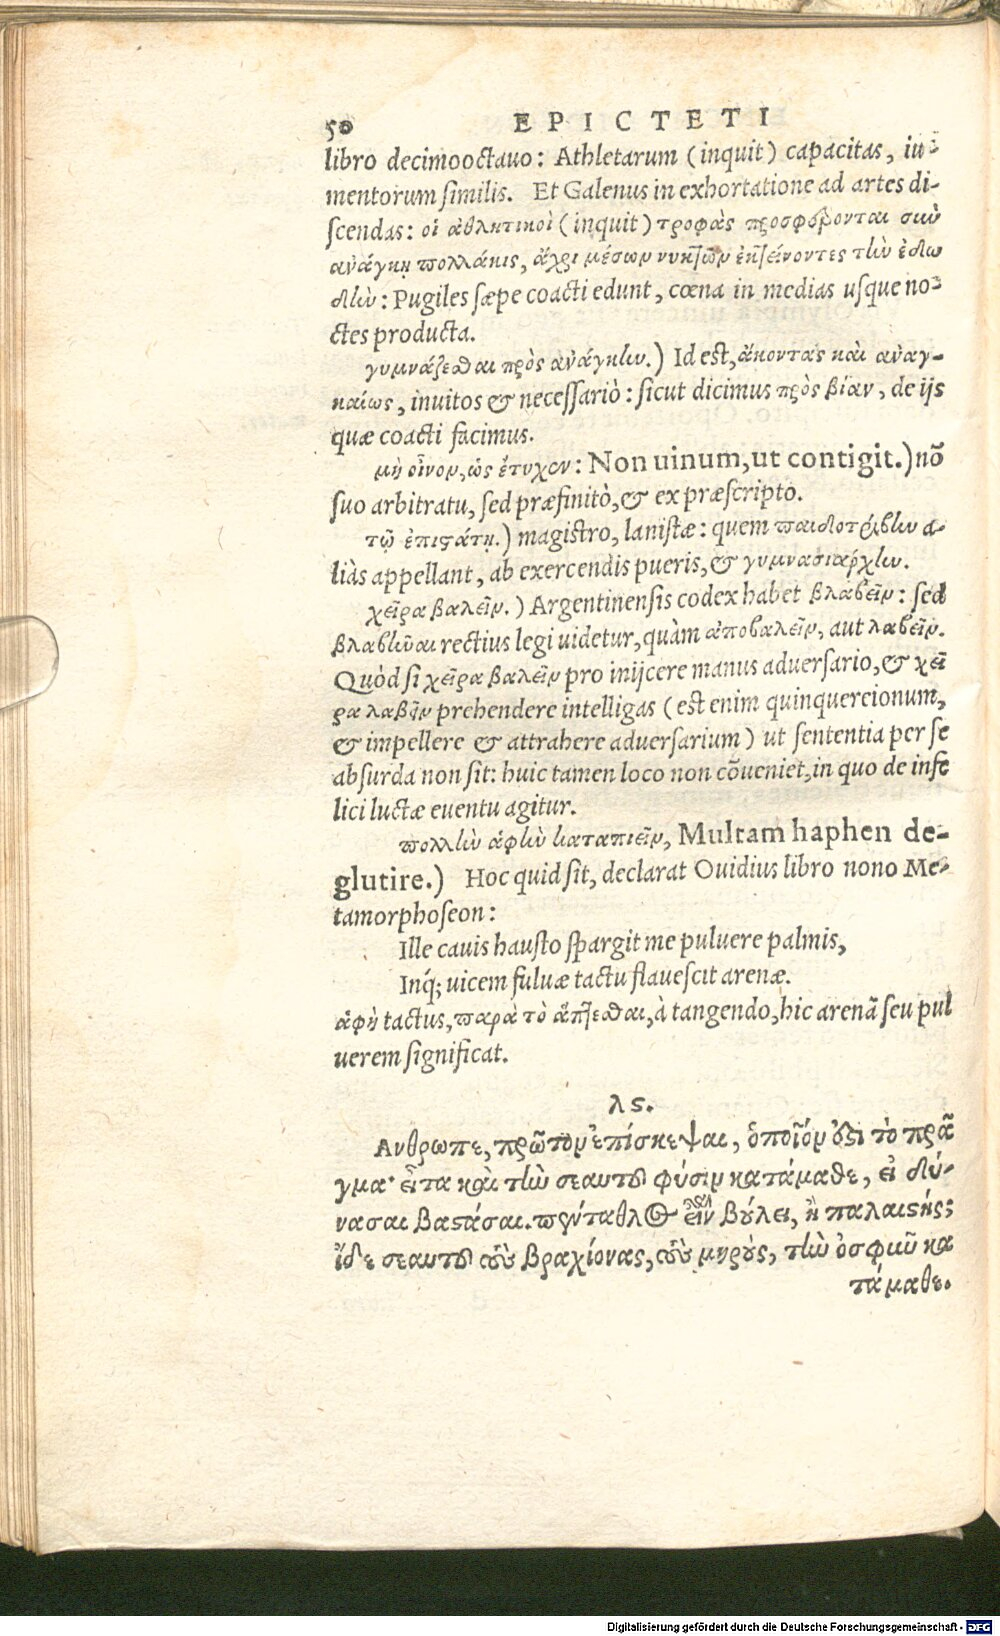 50 EPICTETI
libro decimooctauo: Athletarum (inquit) capacitas, iu-
mentorum similis. Et Galenus in exhortatione ad artes di-
scendas: οἱ ἀθλητικοὶ (inquit) τροφὰς προσφέρονται σὺν
ἀνάγκῃ πολλάκις, ἄχρι μέσων νυκτῶν ἐκτείνοντες τὴν ἐδω
δὴν: Pugiles sæpe coacti edunt, cœna in medias usque no-
ctes producta.
γυμνάζεσθαι πρὸς ἀνάγκην.) Id est, ἄκοντας καὶ ἀναγ-
καίως, inuitos & necessariò: sicut dicimus πρὸς βίαν, de ijs
quæ coacti facimus.
μὴ οἶνον, ὡς ἔτυχεν: Non uinum, ut contigit.) nõ
suo arbitratu, sed præfinitò, & ex præscripto.
τῷ ἐπιστάτῃ.) magistro, lanistæ: quem παιδοτρίβην a-
liàs appellant, ab exercendis pueris, & γυμνασιάρχην.
χεῖρα βαλεῖν.) Argentinensis codex habet βλαβεῖν: sed
βλαβῆναι rectius legi uidetur, quàm ἀποβαλεῖν, aut λαβεῖν.
Quòd si χεῖρα βαλεῖν pro inijcere manus aduersario, & χεῖ
ρα λαβεῖν prehendere intelligas (est enim quinquercionum,
& impellere & attrahere aduersarium) ut sententia per se
absurda non sit: huic tamen loco non cõueniet, in quo de infe
lici luctæ euentu agitur.
πολλὴν ἁφὴν καταπιεῖν, Multam haphen de-
glutire.) Hoc quid sit, declarat Ouidius libro nono Me-
tamorphoseon:
Ille cauis hausto spargit me puluere palmis,
Inq́; uicem fuluæ tactu flauescit arenæ.
ἁφὴ tactus, παρὰ τὸ ἅπτεσθαι, à tangendo, hic arenã seu pul
uerem significat.
λϛ.
Ανθρωπε, πρῶτον ἐπίσκεψαι, ὁποῖόν ὅστι τὸ πρᾶ
γμα· εἶτα καὶ τὴν σεαυτοῦ φύσιν κατάμαθε, εἰ δύ-
νασαι βαστάσαι. πένταθλος εἶναι βούλει, ἢ παλαιστής;
ἴδε σεαυτοῦ τοὺς βραχίονας, τοὺς μηρούς, τὴν ὀσφῦν κα
τάμαθε.
Digitalisierung gefördert durch die Deutsche Forschungsgemeinschaft - DFG